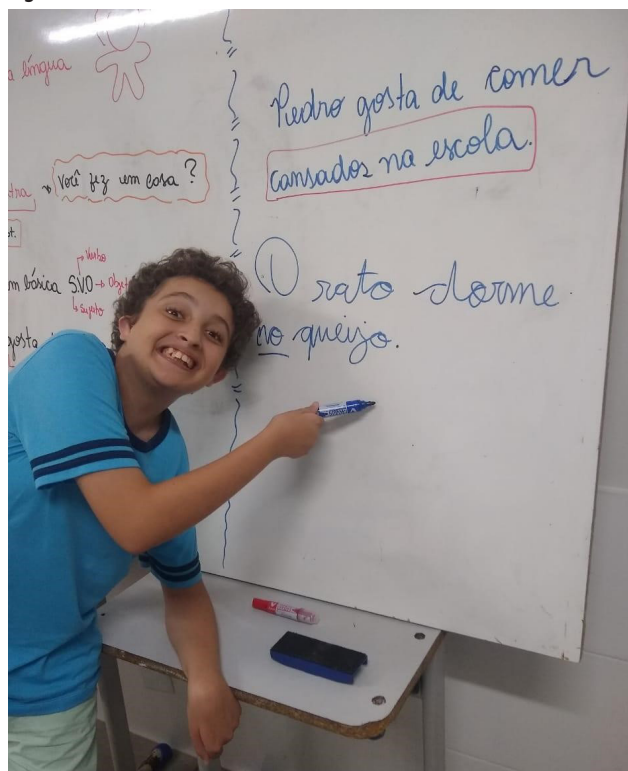 a língua
Você fez um casa?
m básica S.V.O → Obje
Verbo
Sujeito
gosta
Pedro gosta de comer
cansados na escola.
O rato dorme
no queijo.